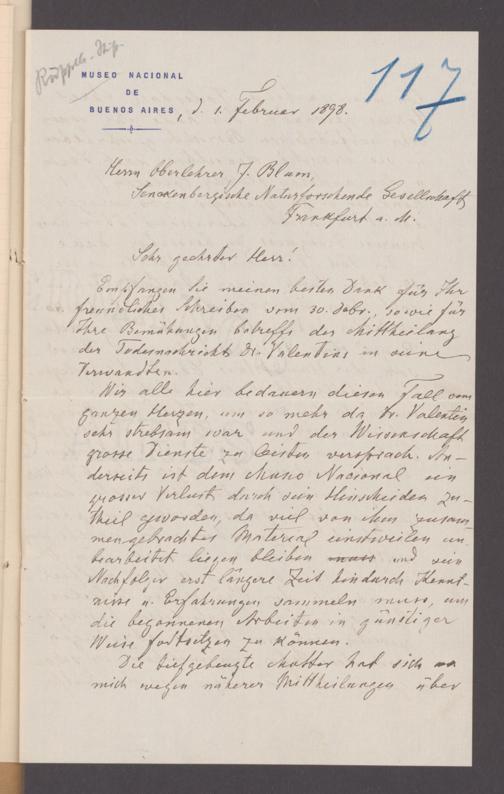 Rüppell-Stip.
117
MUSEO NACIONAL
DE
BUENOS AIRES, d. 1. Februar 1898.
Herrn Oberlehrer J. Blum,
Senckenbergische Naturforschende Gesellschaft
Frankfurt a. M.
Sehr geehrter Herr!
Empfangen Sie meinen besten Dank für Ihr
freundliches Schreiben vom 30. Dzbr., sowie für
Ihre Bemühungen betreffs der Mittheilung
der Todesnachricht Dr. Valentins an seine
Verwandten.
Wir alle hier bedauern diesen Fall vom
ganzen Herzen, um so mehr da Dr. Valentin
sehr strebsam war und der Wissenschaft
grosse Dienste zu leisten versprach. An-
derseits ist dem Museo Nacional ein
grosser Verlust durch sein Hinscheiden zu-
theil geworden, da viel von ihm zusam-
mengebrachtes Material einstweilen un-
bearbeitet liegen bleiben muss und sein
Nachfolger erst längere Zeit hindurch Kennt-
nisse u. Erfahrungen sammeln muss, um
die begonnenen Arbeiten in günstiger
Weise fortsetzen zu können.
Die tiefgebeugte Mutter hat sich an
mich wegen näherer Mittheilungen über